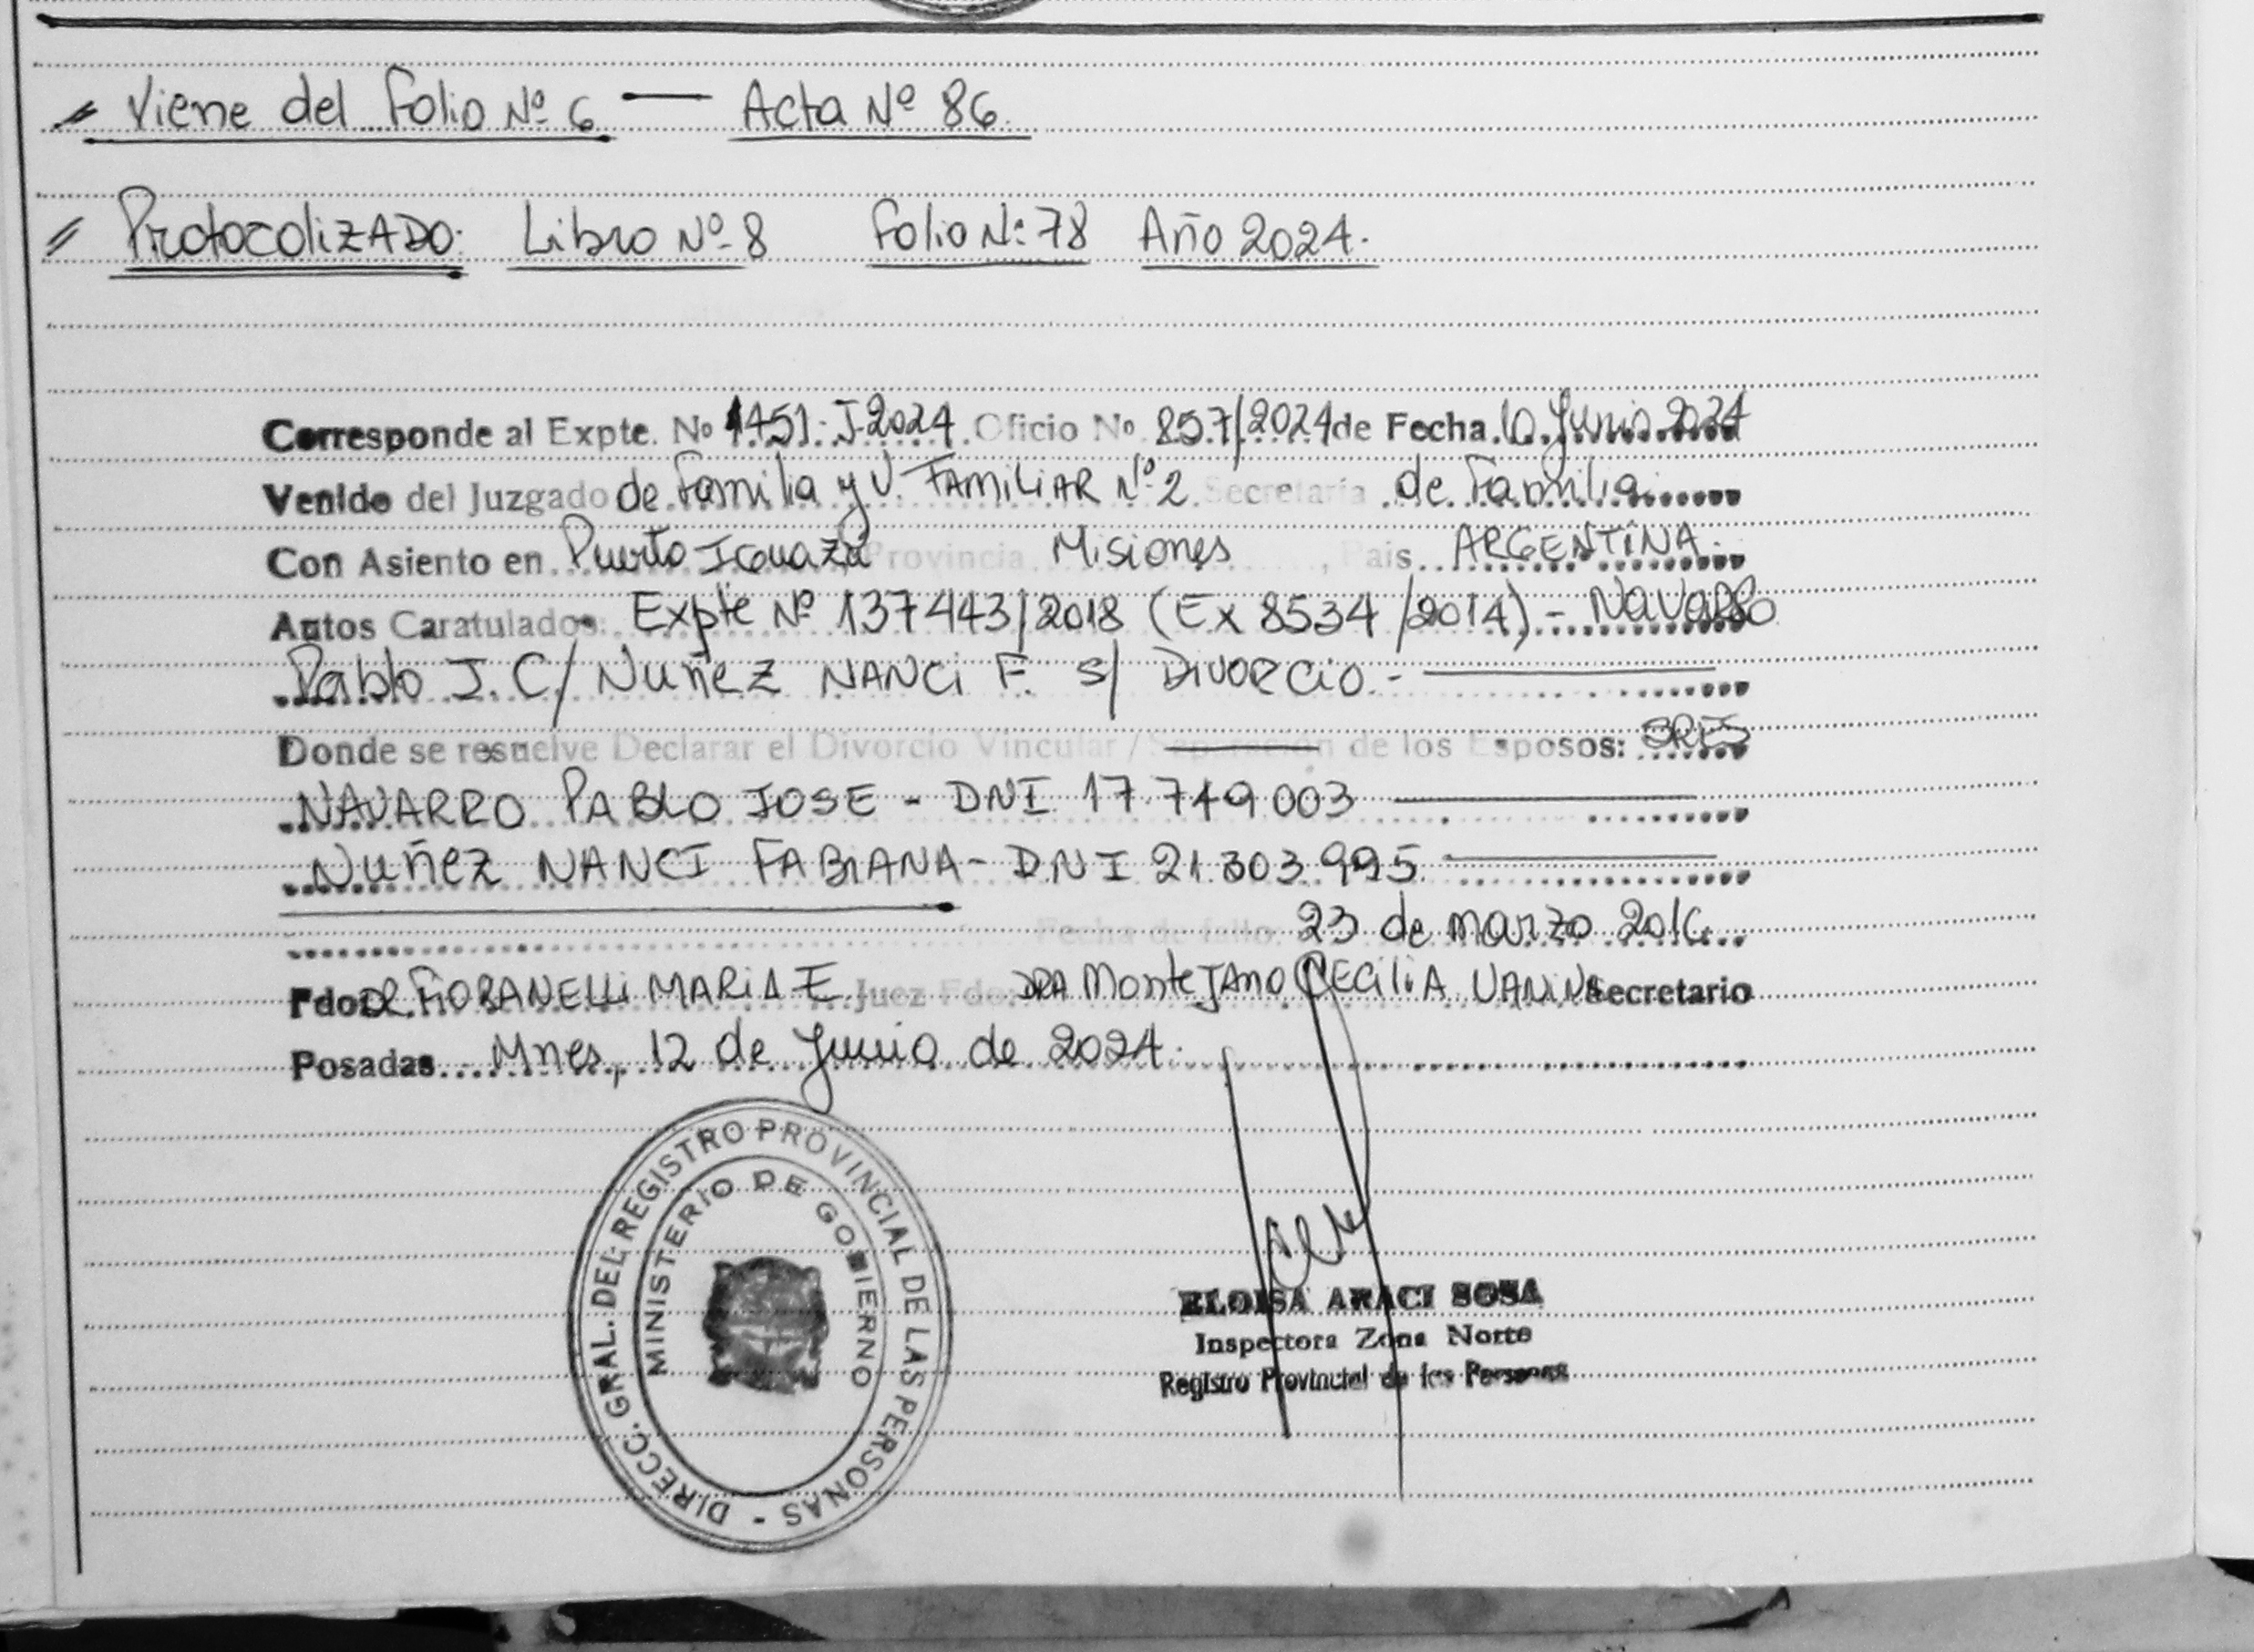 Viene del Folio Nº 6 — Acta Nº 86.
Protocolizado: Libro Nº 8 Folio Nº 78 Año 2024.
Corresponde al Expte. Nº 1451-J-2024 Oficio Nº 857/2024 de Fecha 10 Junio 2024
Venido del Juzgado de Familia y V. Familiar Nº 2 Secretaría de Familia
Con Asiento en Puerto Iguazú Provincia Misiones, País ARGENTINA.
Autos Caratulados: Expte Nº 137443/2018 (Ex 8534/2014) - Navarro
Pablo J. C/ Nuñez NANCI F. s/ Divorcio.-
Donde se resuelve Declarar el Divorcio Vincular / Separación de los Esposos: SRES
NAVARRO PABLO JOSE - DNI 17.749.003
Nuñez NANCI FABIANA - DNI 21.303.995
Fecha de fallo: 23 de marzo 2016
Fdo: DR FIORANELLI MARIA E Juez Fdo: DRA MonteJAno CECILIA VANINA Secretario
Posadas Mnes, 12 de Junio de 2024.
DIRECC. GRAL. DEL REGISTRO PROVINCIAL DE LAS PERSONAS -
MINISTERIO DE GOBIERNO
ELOISA ARACI SOSA
Inspectora Zona Norte
Registro Provincial de las Personas